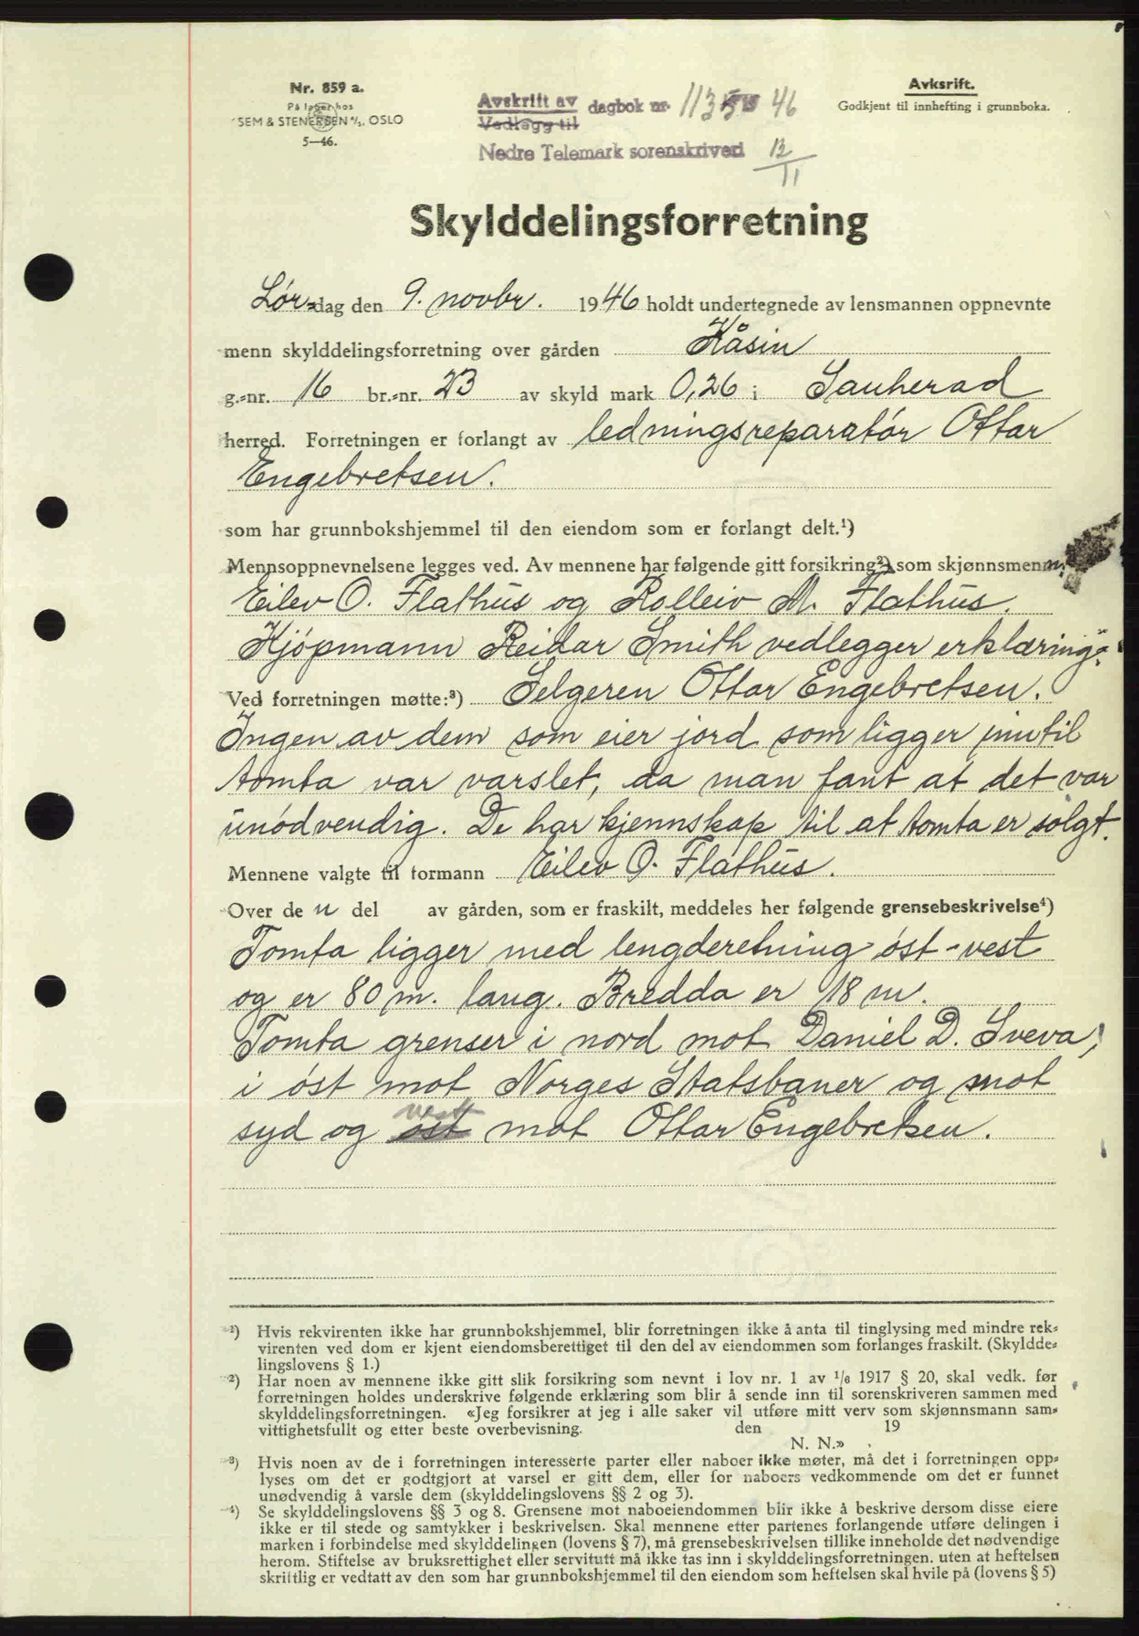 Nr. 859 a.
På lager hos
SEM & STENERSEN A/S. OSLO
5—46.
Avskrift av
Vedlegg til
dagbok nr. 46
Nedre Telemark sorenskriveri 12/11
Avksrift.
Godkjent til innhefting i grunnboka.
Skylddelingsforretning
Lørdag den 9. novbr. 1946 holdt undertegnede av lensmannen oppnevnte
menn skylddelingsforretning over gården Kåsin
g.-nr. 16 br.-nr. 23 av skyld mark 0,26 i Sauherad
herred. Forretningen er forlangt av ledningsreparatör Ottar
Engebretsen.
som har grunnbokshjemmel til den eiendom som er forlangt delt.¹)
Mennsoppnevnelsene legges ved. Av mennene har følgende gitt forsikring²) som skjønnsmenn:
Eilev O. Flathus og Rolleiv M. Flathus.
Kjöpmann Reidar Smith vedlegger erklæring.
Ved forretningen møtte:³) Selgeren Ottar Engebretsen.
Ingen av dem som eier jord som ligger inntil
tomta var varslet, da man fant at det var
unödvendig. De har kjennskap til at tomta er solgt.
Mennene valgte til formann Eilev O. Flathus.
Over de n del av gården, som er fraskilt, meddeles her følgende grensebeskrivelse⁴)
Tomta ligger med lengderetning öst-vest
og er 80 m. lang. Bredda er 18 m.
Tomta grenser i nord mot Daniel D. Sveva,
i öst mot Norges Statsbaner og mot
vest
syd og öst mot Ottar Engebretsen.
¹) Hvis rekvirenten ikke har grunnbokshjemmel, blir forretningen ikke å anta til tinglysing med mindre rek-
virenten ved dom er kjent eiendomsberettiget til den del av eiendommen som forlanges fraskilt. (Skyldde-
lingslovens § 1.)
²) Har noen av mennene ikke gitt slik forsikring som nevnt i lov nr. 1 av 1/6 1917 § 20, skal vedk. før
forretningen holdes underskrive følgende erklæring som blir å sende inn til sorenskriveren sammen med
skylddelingsforretningen. «Jeg forsikrer at jeg i alle saker vil utføre mitt verv som skjønnsmann sam-
vittighetsfullt og etter beste overbevisning. den 19
N. N.»
³) Hvis noen av de i forretningen interesserte parter eller naboer ikke møter, må det i forretningen opp-
lyses om det er godtgjort at varsel er gitt dem, eller for naboers vedkommende om det er funnet
unødvendig å varsle dem (skylddelingslovens §§ 2 og 3).
⁴) Se skylddelingslovens §§ 3 og 8. Grensene mot naboeiendommen blir ikke å beskrive dersom disse eiere
ikke er til stede og samtykker i beskrivelsen. Skal mennene etter partenes forlangende utføre delingen i
marken i forbindelse med skylddelingen (lovens § 7), må grensebeskrivelsen tillike inneholde det nødvendige
herom. Stiftelse av bruksrettighet eller servitutt må ikke tas inn i skylddelingsforretningen. uten at heftelsen
skriftlig er vedtatt av den som har grunnbokshjemmel til den eiendom som heftelsen skal hvile på (lovens § 5)